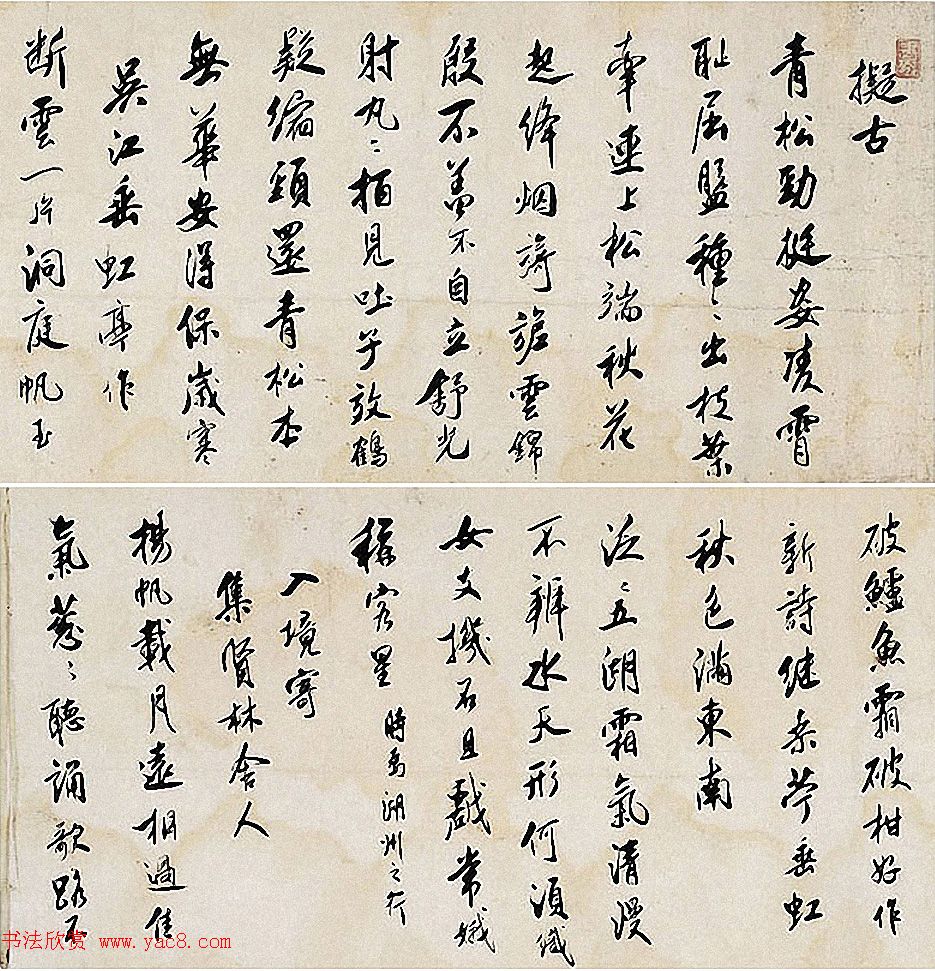 擬古
青松勁挺姿凌霄
恥屈盤種〻出枝葉
牽連上松端秋花
起絳烟旖旎雲錦
殷不羞不自立舒光
射丸〻柏見吐子效鶴
疑縮頸還青松本
無華安得保歲寒
吳江垂虹亭作
断雲一片洞庭帆玉
破鱸魚霜破柑好作
新詩继桑苧垂虹
秋色滿東南
泛〻五湖霜氣清漫
不辨水天形何須織
女支機石且戲常娥
稱客星 時為湖州之行
入境寄
集賢林舍人
揚帆載月遠相過佳
氣蔥〻聽誦歌路不
书法欣赏 www.yac8.com